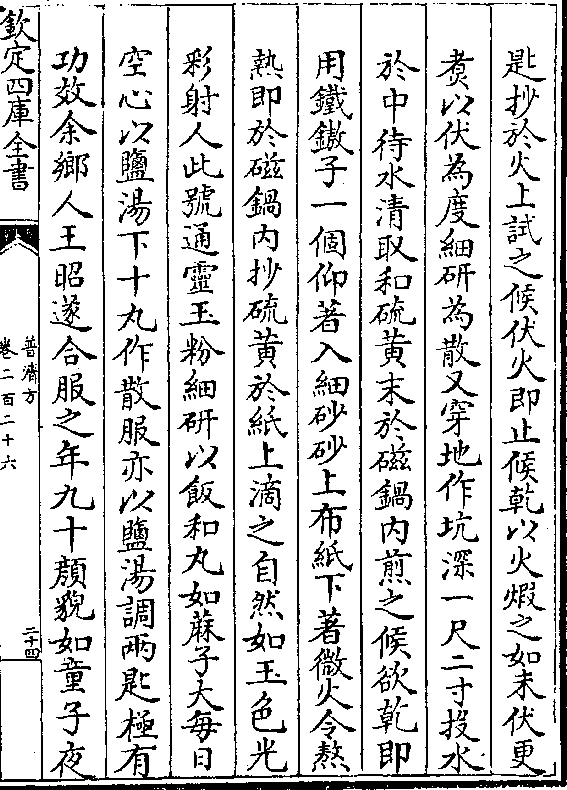 匙抄於火上試之候伏火即止候乾以火煆之如未伏更
煑以伏為度細研為散又穿地作坑深一尺二寸投水
於中待水清取和硫黄末於磁鍋内煎之候欲乾即
用鐵鏃子一個仰著入細砂砂上布紙下著微火令熬
熱即於磁鍋内抄硫黄於紙上滴之自然如玉色光
彩射人此號通靈玉粉細研以飯和丸如蔴子大每日
空心以鹽湯下十丸作散服亦以鹽湯調兩匙極有
功效余鄉人王昭遂合服之年九十顔貌如童子夜
欽定四庫全書
普濟方
卷二百二十六
二十四